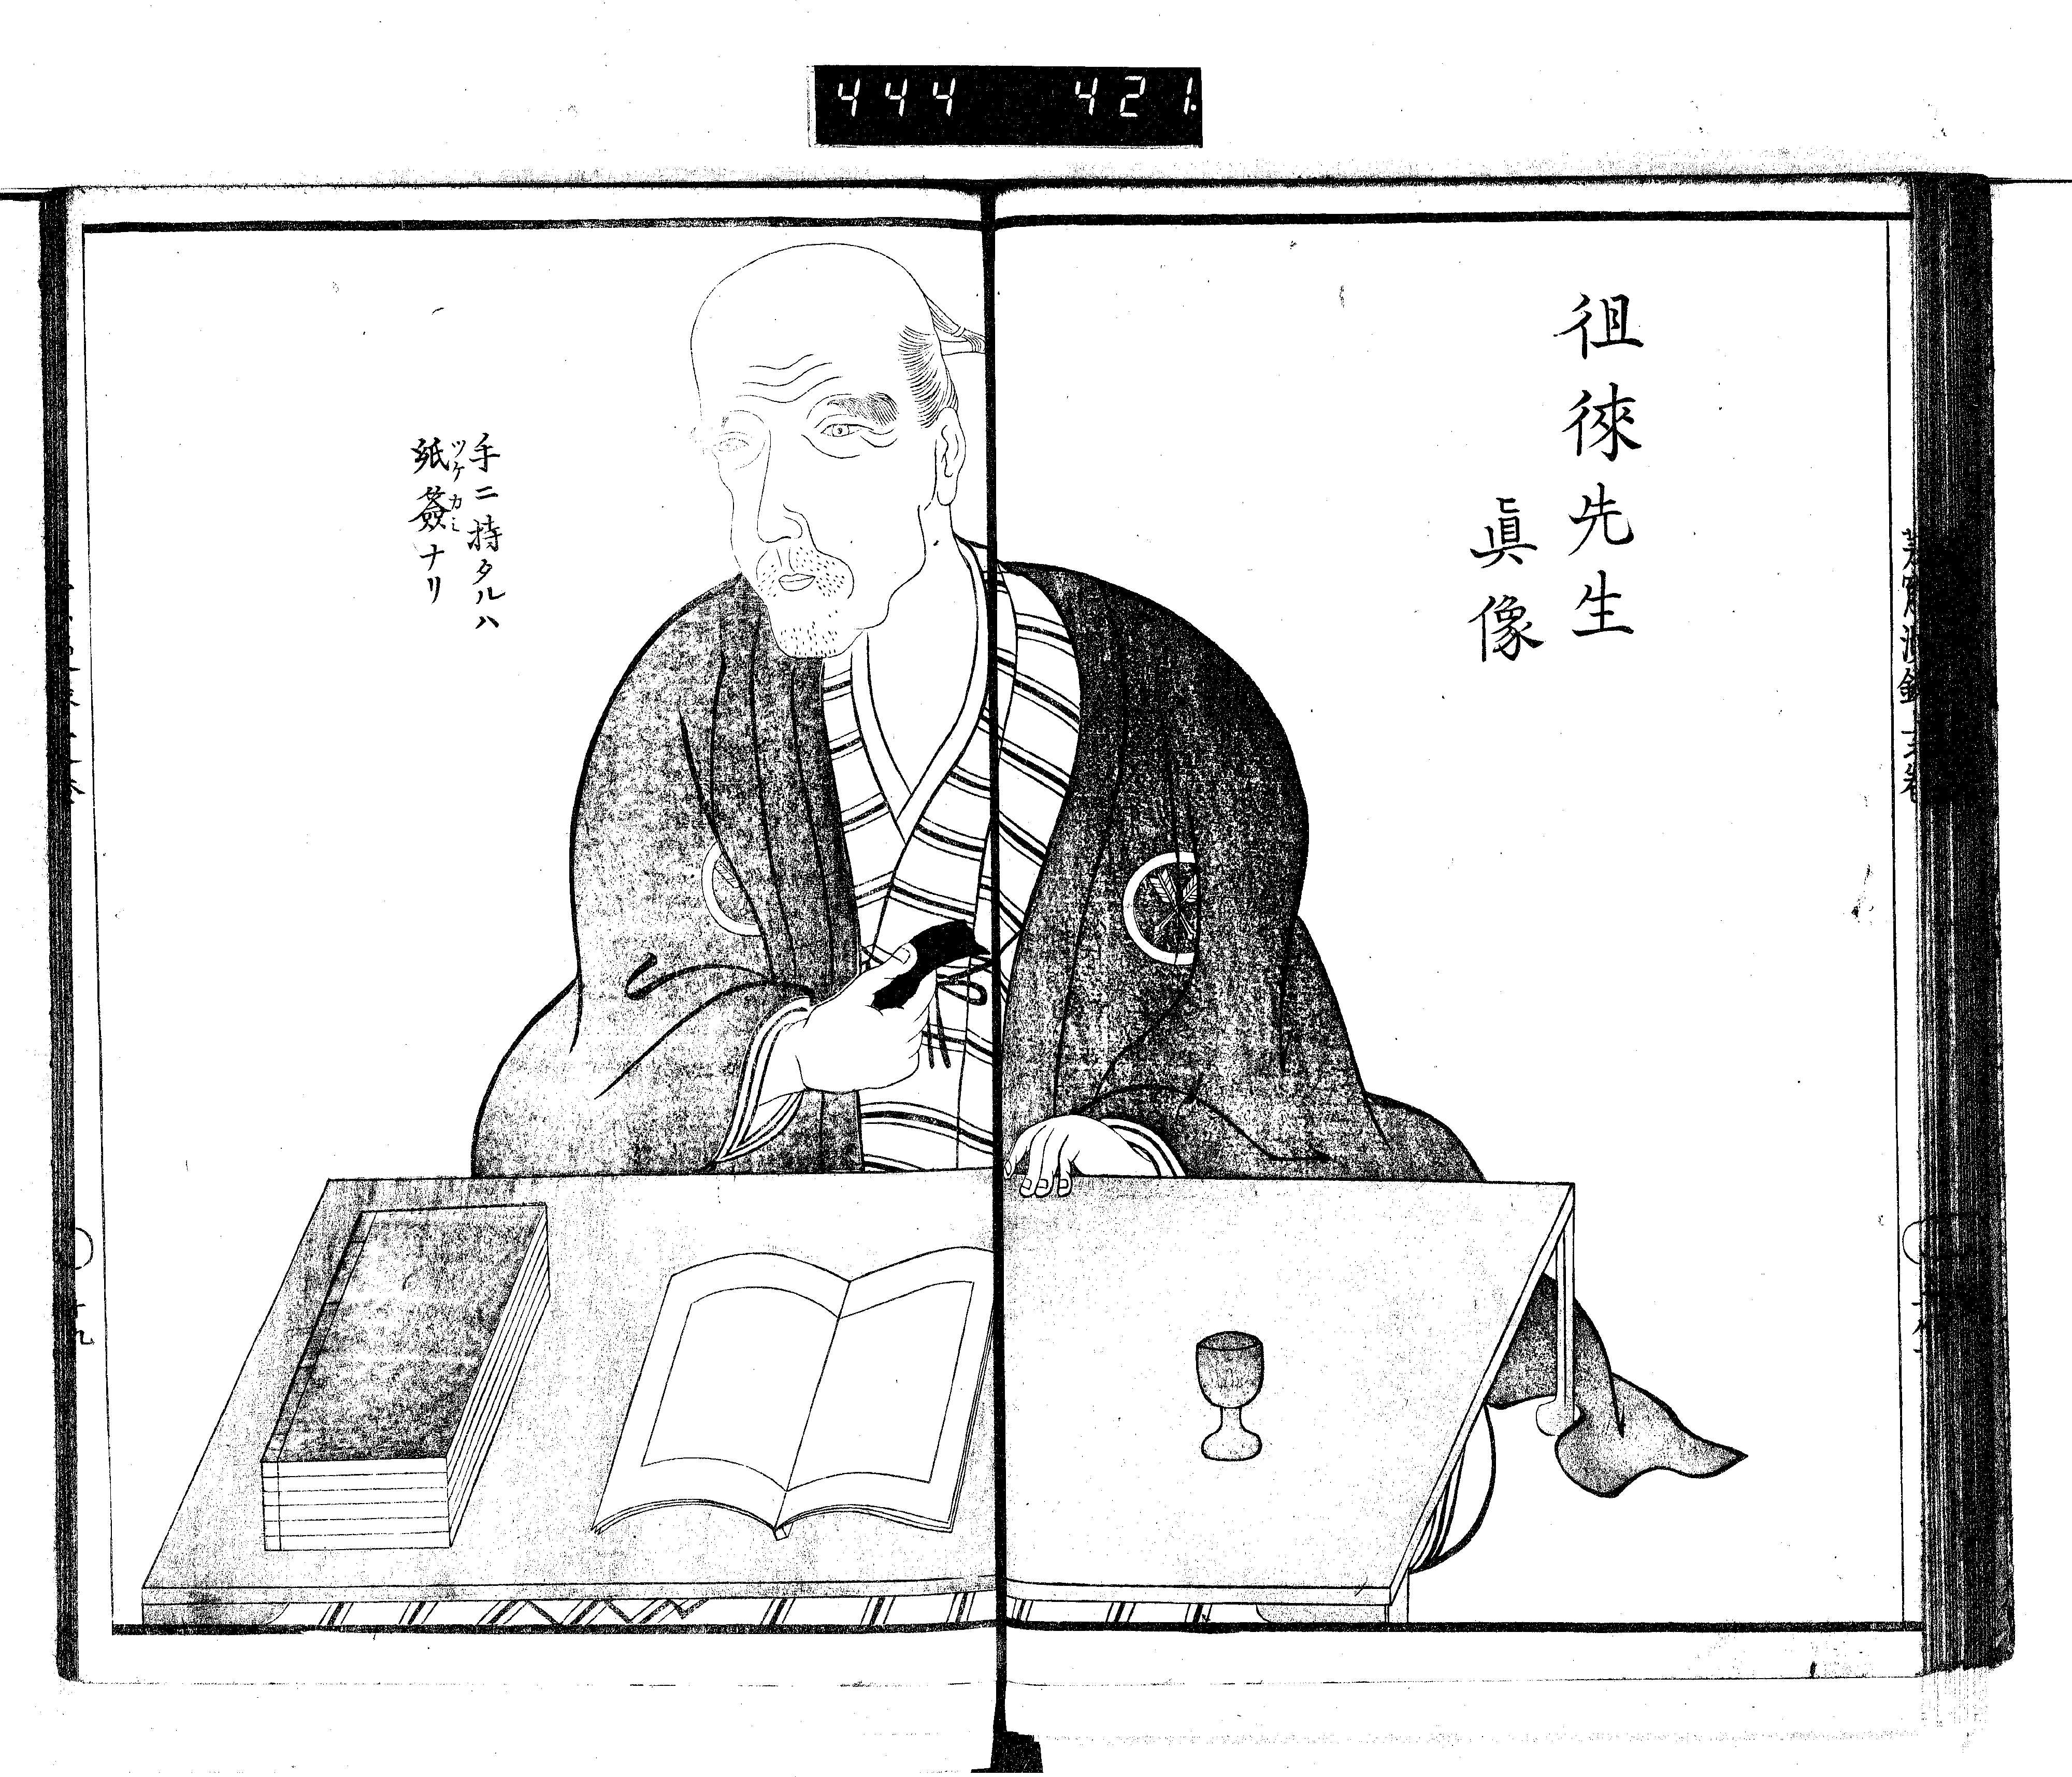 444 421.
徂徠先生
眞像
手ニ持タルハ
紙簽ナリ
ツケカミ